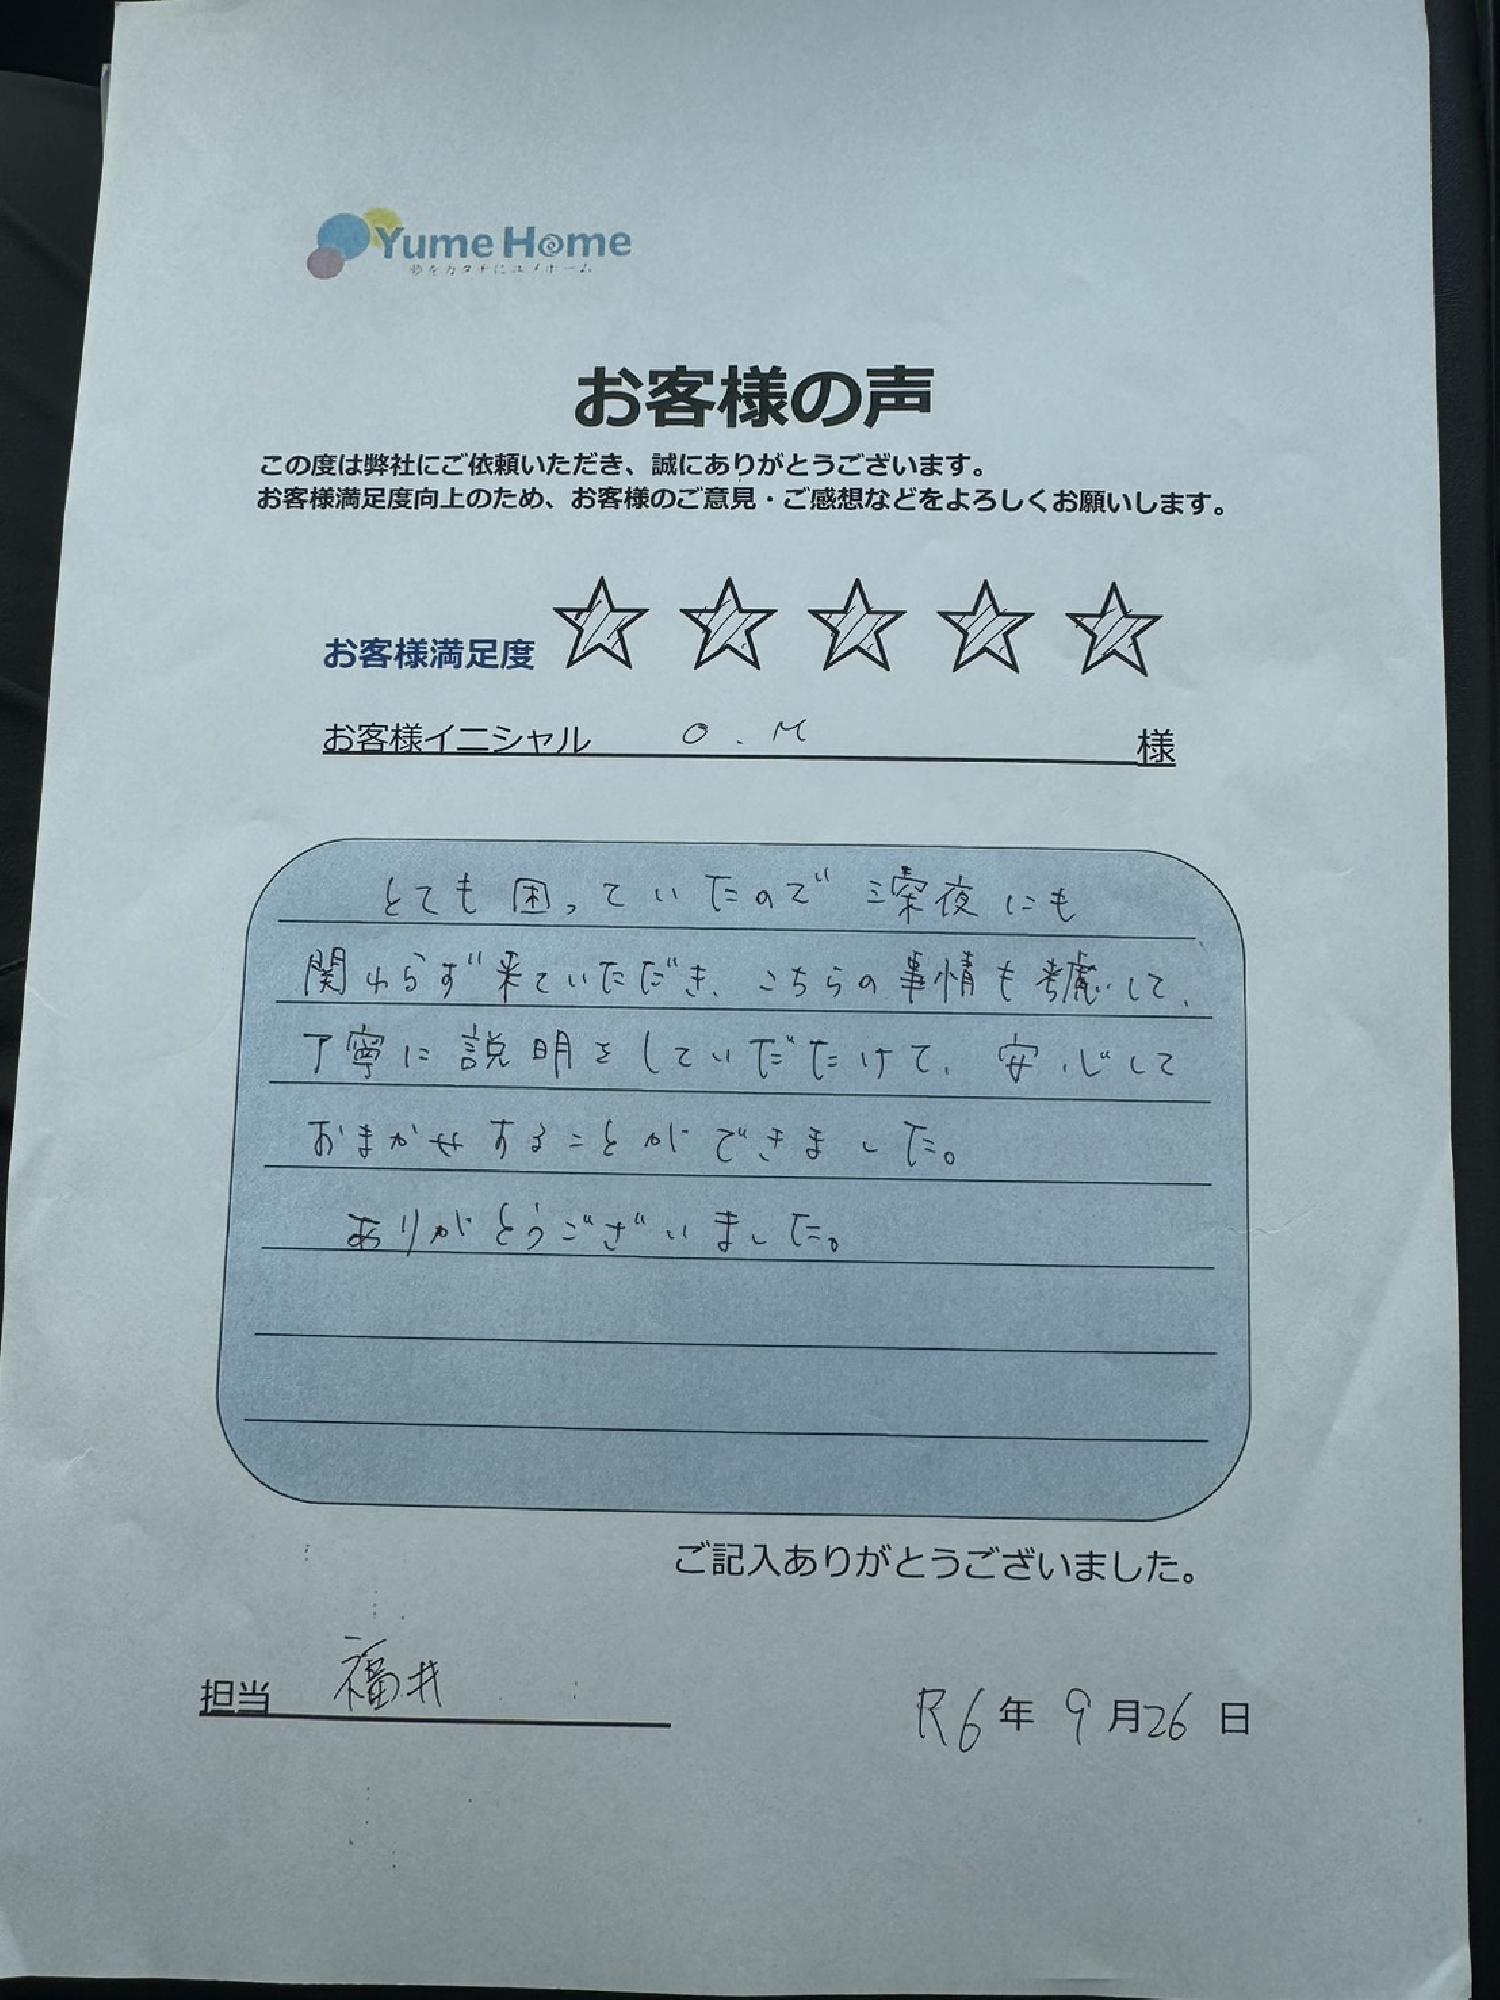 Yume Home
夢をカタチにユメホーム
お客様の声
この度は弊社にご依頼いただき、誠にありがとうございます。
お客様満足度向上のため、お客様のご意見・ご感想などをよろしくお願いします。
お客様満足度
お客様イニシャル O.M 様
とても困っていたので深夜にも
関わらず来ていただき、こちらの事情も考慮して、
丁寧に説明をしていだだけて、安心して
おまかせすることができました。
ありがとうございました。
ご記入ありがとうございました。
担当 福井
R6年 9月26日